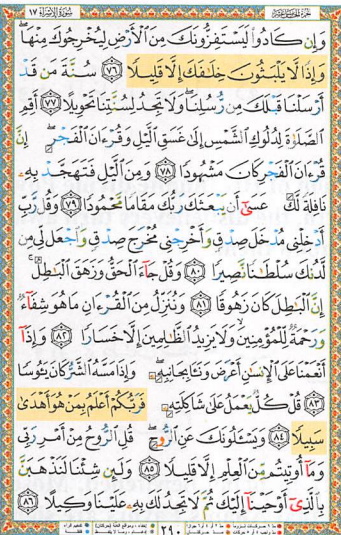 سُورَةُ الإِسْرَاءِ ١٧
وَإِن كَادُوا۟ لَيَسْتَفِزُّونَكَ مِنَ ٱلْأَرْضِ لِيُخْرِجُوكَ مِنْهَا ۖ
وَإِذًا لَّا يَلْبَثُونَ خِلَٰفَكَ إِلَّا قَلِيلًا ﴿٧٦﴾ سُنَّةَ مَن قَدْ
أَرْسَلْنَا قَبْلَكَ مِن رُّسُلِنَا ۖ وَلَا تَجِدُ لِسُنَّتِنَا تَحْوِيلًا ﴿٧٧﴾ أَقِمِ
ٱلصَّلَوٰةَ لِدُلُوكِ ٱلشَّمْسِ إِلَىٰ غَسَقِ ٱلَّيْلِ وَقُرْءَانَ ٱلْفَجْرِ ۖ إِنَّ
قُرْءَانَ ٱلْفَجْرِ كَانَ مَشْهُودًا ﴿٧٨﴾ وَمِنَ ٱلَّيْلِ فَتَهَجَّدْ بِهِۦ
نَافِلَةً لَّكَ عَسَىٰٓ أَن يَبْعَثَكَ رَبُّكَ مَقَامًا مَّحْمُودًا ﴿٧٩﴾ وَقُل رَّبِّ
أَدْخِلْنِى مُدْخَلَ صِدْقٍ وَأَخْرِجْنِى مُخْرَجَ صِدْقٍ وَٱجْعَل لِّى مِن
لَّدُنكَ سُلْطَٰنًا نَّصِيرًا ﴿٨٠﴾ وَقُلْ جَآءَ ٱلْحَقُّ وَزَهَقَ ٱلْبَٰطِلُ ۚ
إِنَّ ٱلْبَٰطِلَ كَانَ زَهُوقًا ﴿٨١﴾ وَنُنَزِّلُ مِنَ ٱلْقُرْءَانِ مَا هُوَ شِفَآءٌ
وَرَحْمَةٌ لِّلْمُؤْمِنِينَ ۙ وَلَا يَزِيدُ ٱلظَّٰلِمِينَ إِلَّا خَسَارًا ﴿٨٢﴾ وَإِذَآ
أَنْعَمْنَا عَلَى ٱلْإِنسَٰنِ أَعْرَضَ وَنَـَٔا بِجَانِبِهِۦ ۖ وَإِذَا مَسَّهُ ٱلشَّرُّ كَانَ يَـُٔوسًا
﴿٨٣﴾ قُلْ كُلٌّ يَعْمَلُ عَلَىٰ شَاكِلَتِهِۦ فَرَبُّكُمْ أَعْلَمُ بِمَنْ هُوَ أَهْدَىٰ
سَبِيلًا ﴿٨٤﴾ وَيَسْـَٔلُونَكَ عَنِ ٱلرُّوحِ ۖ قُلِ ٱلرُّوحُ مِنْ أَمْرِ رَبِّى
وَمَآ أُوتِيتُم مِّنَ ٱلْعِلْمِ إِلَّا قَلِيلًا ﴿٨٥﴾ وَلَئِن شِئْنَا لَنَذْهَبَنَّ
بِٱلَّذِىٓ أَوْحَيْنَآ إِلَيْكَ ثُمَّ لَا تَجِدُ لَكَ بِهِۦ عَلَيْنَا وَكِيلًا ﴿٨٦﴾
٢٩٠